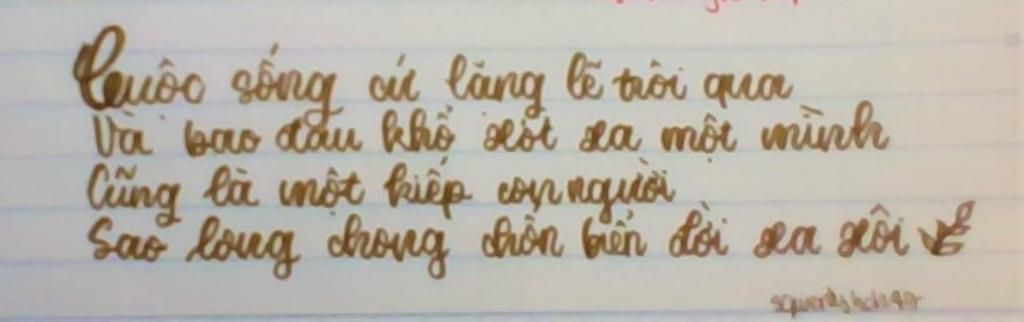 Cuộc sống cứ lặng lẽ trôi qua
Và bao đau khổ xót xa một mình
Cũng là một kiếp con người
Sao long chong chốn biển đời xa xôi